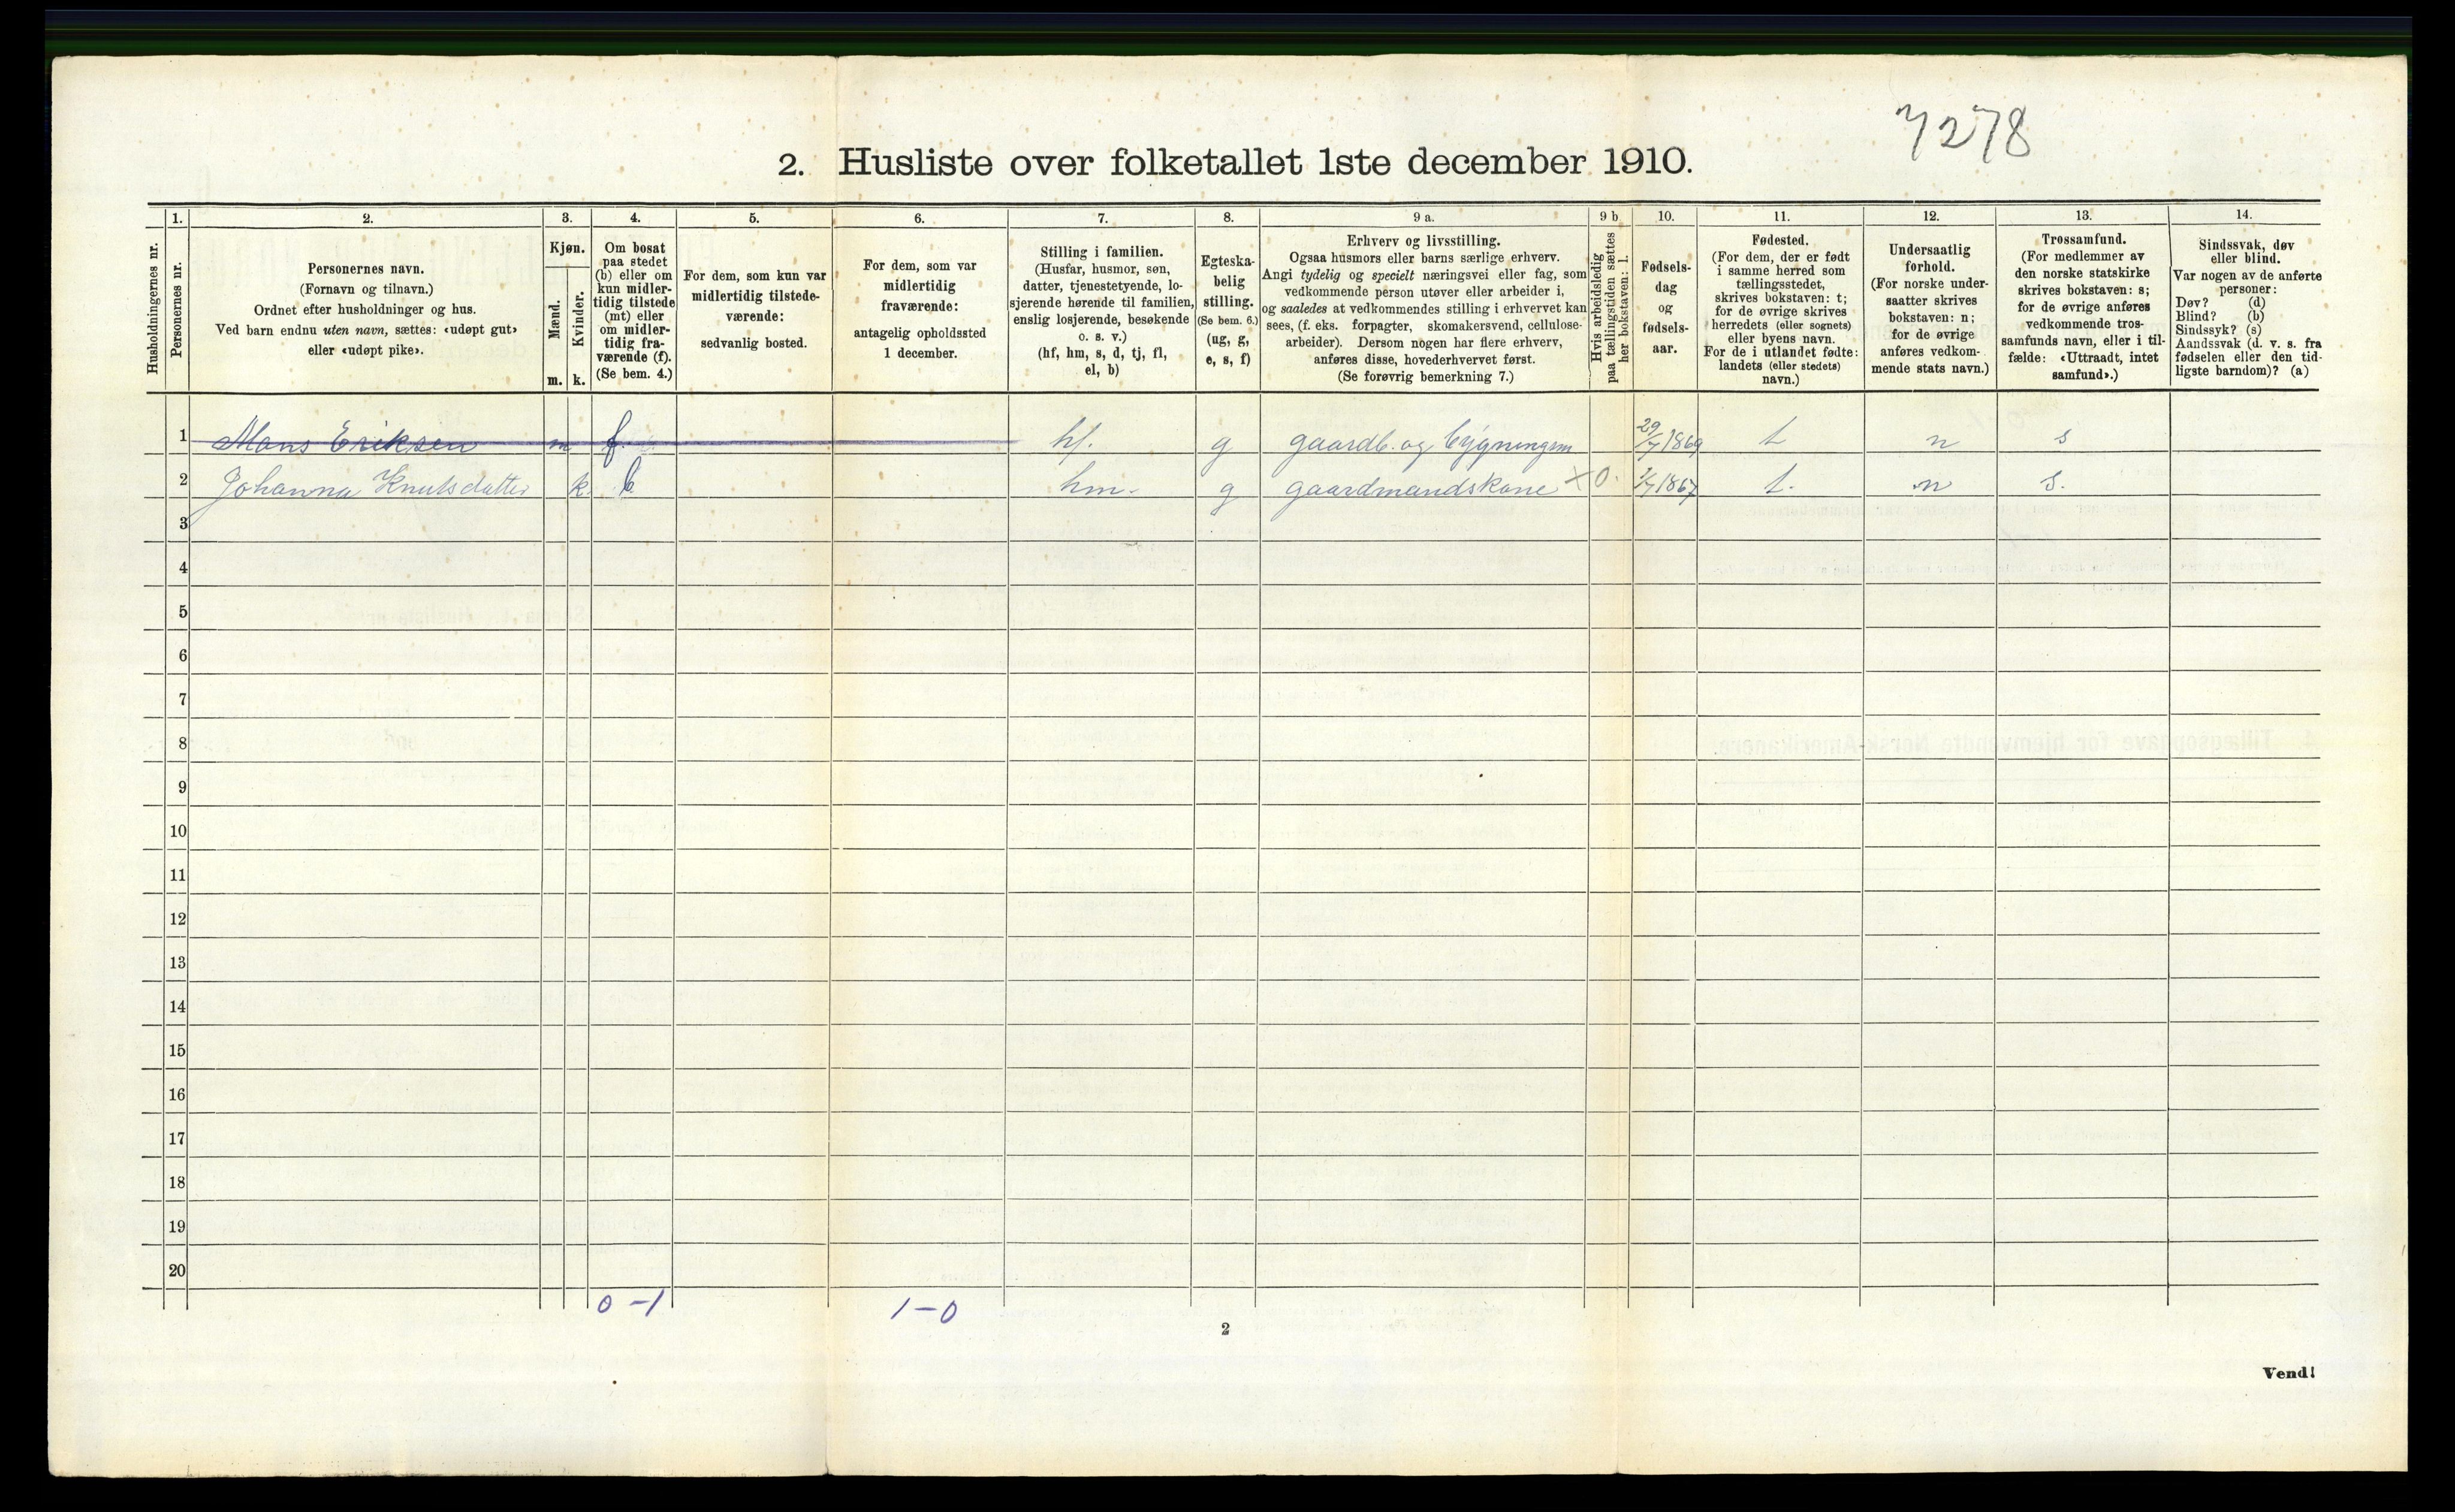 7278
2. Husliste over folketallet 1ste december 1910.
Husholdningernes nr.
1. Personernes nr.
2. Personernes navn.
(Fornavn og tilnavn.)
Ordnet efter husholdninger og hus.
Ved barn endnu uten navn, sættes: «udøpt gut»
eller «udøpt pike».
3. Kjøn.
Mænd. m.
Kvinder. k.
4. Om bosat
paa stedet
(b) eller om
kun midler-
tidig tilstede
(mt) eller
om midler-
tidig fra-
værende (f).
(Se bem. 4.)
5. For dem, som kun var
midlertidig tilstede-
værende:
sedvanlig bosted.
6. For dem, som var
midlertidig
fraværende:
antagelig opholdssted
1 december.
7. Stilling i familien.
(Husfar, husmor, søn,
datter, tjenestetyende, lo-
sjerende hørende til familien,
enslig losjerende, besøkende
o. s. v.)
(hf, hm, s, d, tj, fl,
el, b)
8. Egteska-
belig
stilling.
(Se bem. 6.)
(ug, g,
e, s, f)
9 a. Erhverv og livsstilling.
Ogsaa husmors eller barns særlige erhverv.
Angi tydelig og specielt næringsvei eller fag, som
vedkommende person utøver eller arbeider i,
og saaledes at vedkommendes stilling i erhvervet kan
sees, (f. eks. forpagter, skomakersvend, cellulose-
arbeider). Dersom nogen har flere erhverv,
anføres disse, hovederhvervet først.
(Se forøvrig bemerkning 7.)
9 b Hvis arbeidsledig
paa tællingstiden sættes
her bokstaven: l.
10. Fødsels-
dag
og
fødsels-
aar.
11. Fødested.
(For dem, der er født
i samme herred som
tællingsstedet,
skrives bokstaven: t;
for de øvrige skrives
herredets (eller sognets)
eller byens navn.
For de i utlandet fødte:
landets (eller stedets)
navn.)
12. Undersaatlig
forhold.
(For norske under-
saatter skrives
bokstaven: n;
for de øvrige
anføres vedkom-
mende stats navn.)
13. Trossamfund.
(For medlemmer av
den norske statskirke
skrives bokstaven: s;
for de øvrige anføres
vedkommende tros-
samfunds navn, eller i til-
fælde: «Uttraadt, intet
samfund».)
14. Sindssvak, døv
eller blind.
Var nogen av de anførte
personer:
Døv? (d)
Blind? (b)
Sindssyk? (s)
Aandssvak (d. v. s. fra
fødselen eller den tid-
ligste barndom)? (a)
1 Mons Eriksen m f. hf. g gaardb. og bygningsm 29/7 1869 t n s
2 Johanna Knutsdatter k. b hm. g gaardmandskone × 0. 1/7 1867 t. n s.
3
4
5
6
7
8
9
10
11
12
13
14
15
16
17
18
19
20
0 - 1 1 - 0
2
Vend!